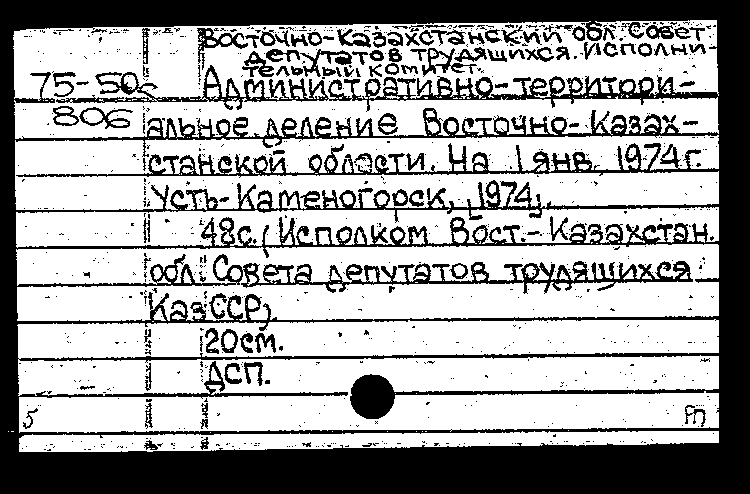 Восточно-Казахстанский обл. Совет
депутатов трудящихся. Исполни-
тельный комитет.
75-50 Административно-территори-
806 альное деление Восточно-Казах-
станской области. На 1 янв. 1974г.
Усть-Каменогорск, 1974.
48с. (Исполком Вост.-Казахстан.
обл. Совета депутатов трудящихся
КазССР).
20см.
ДСП.
5 РП